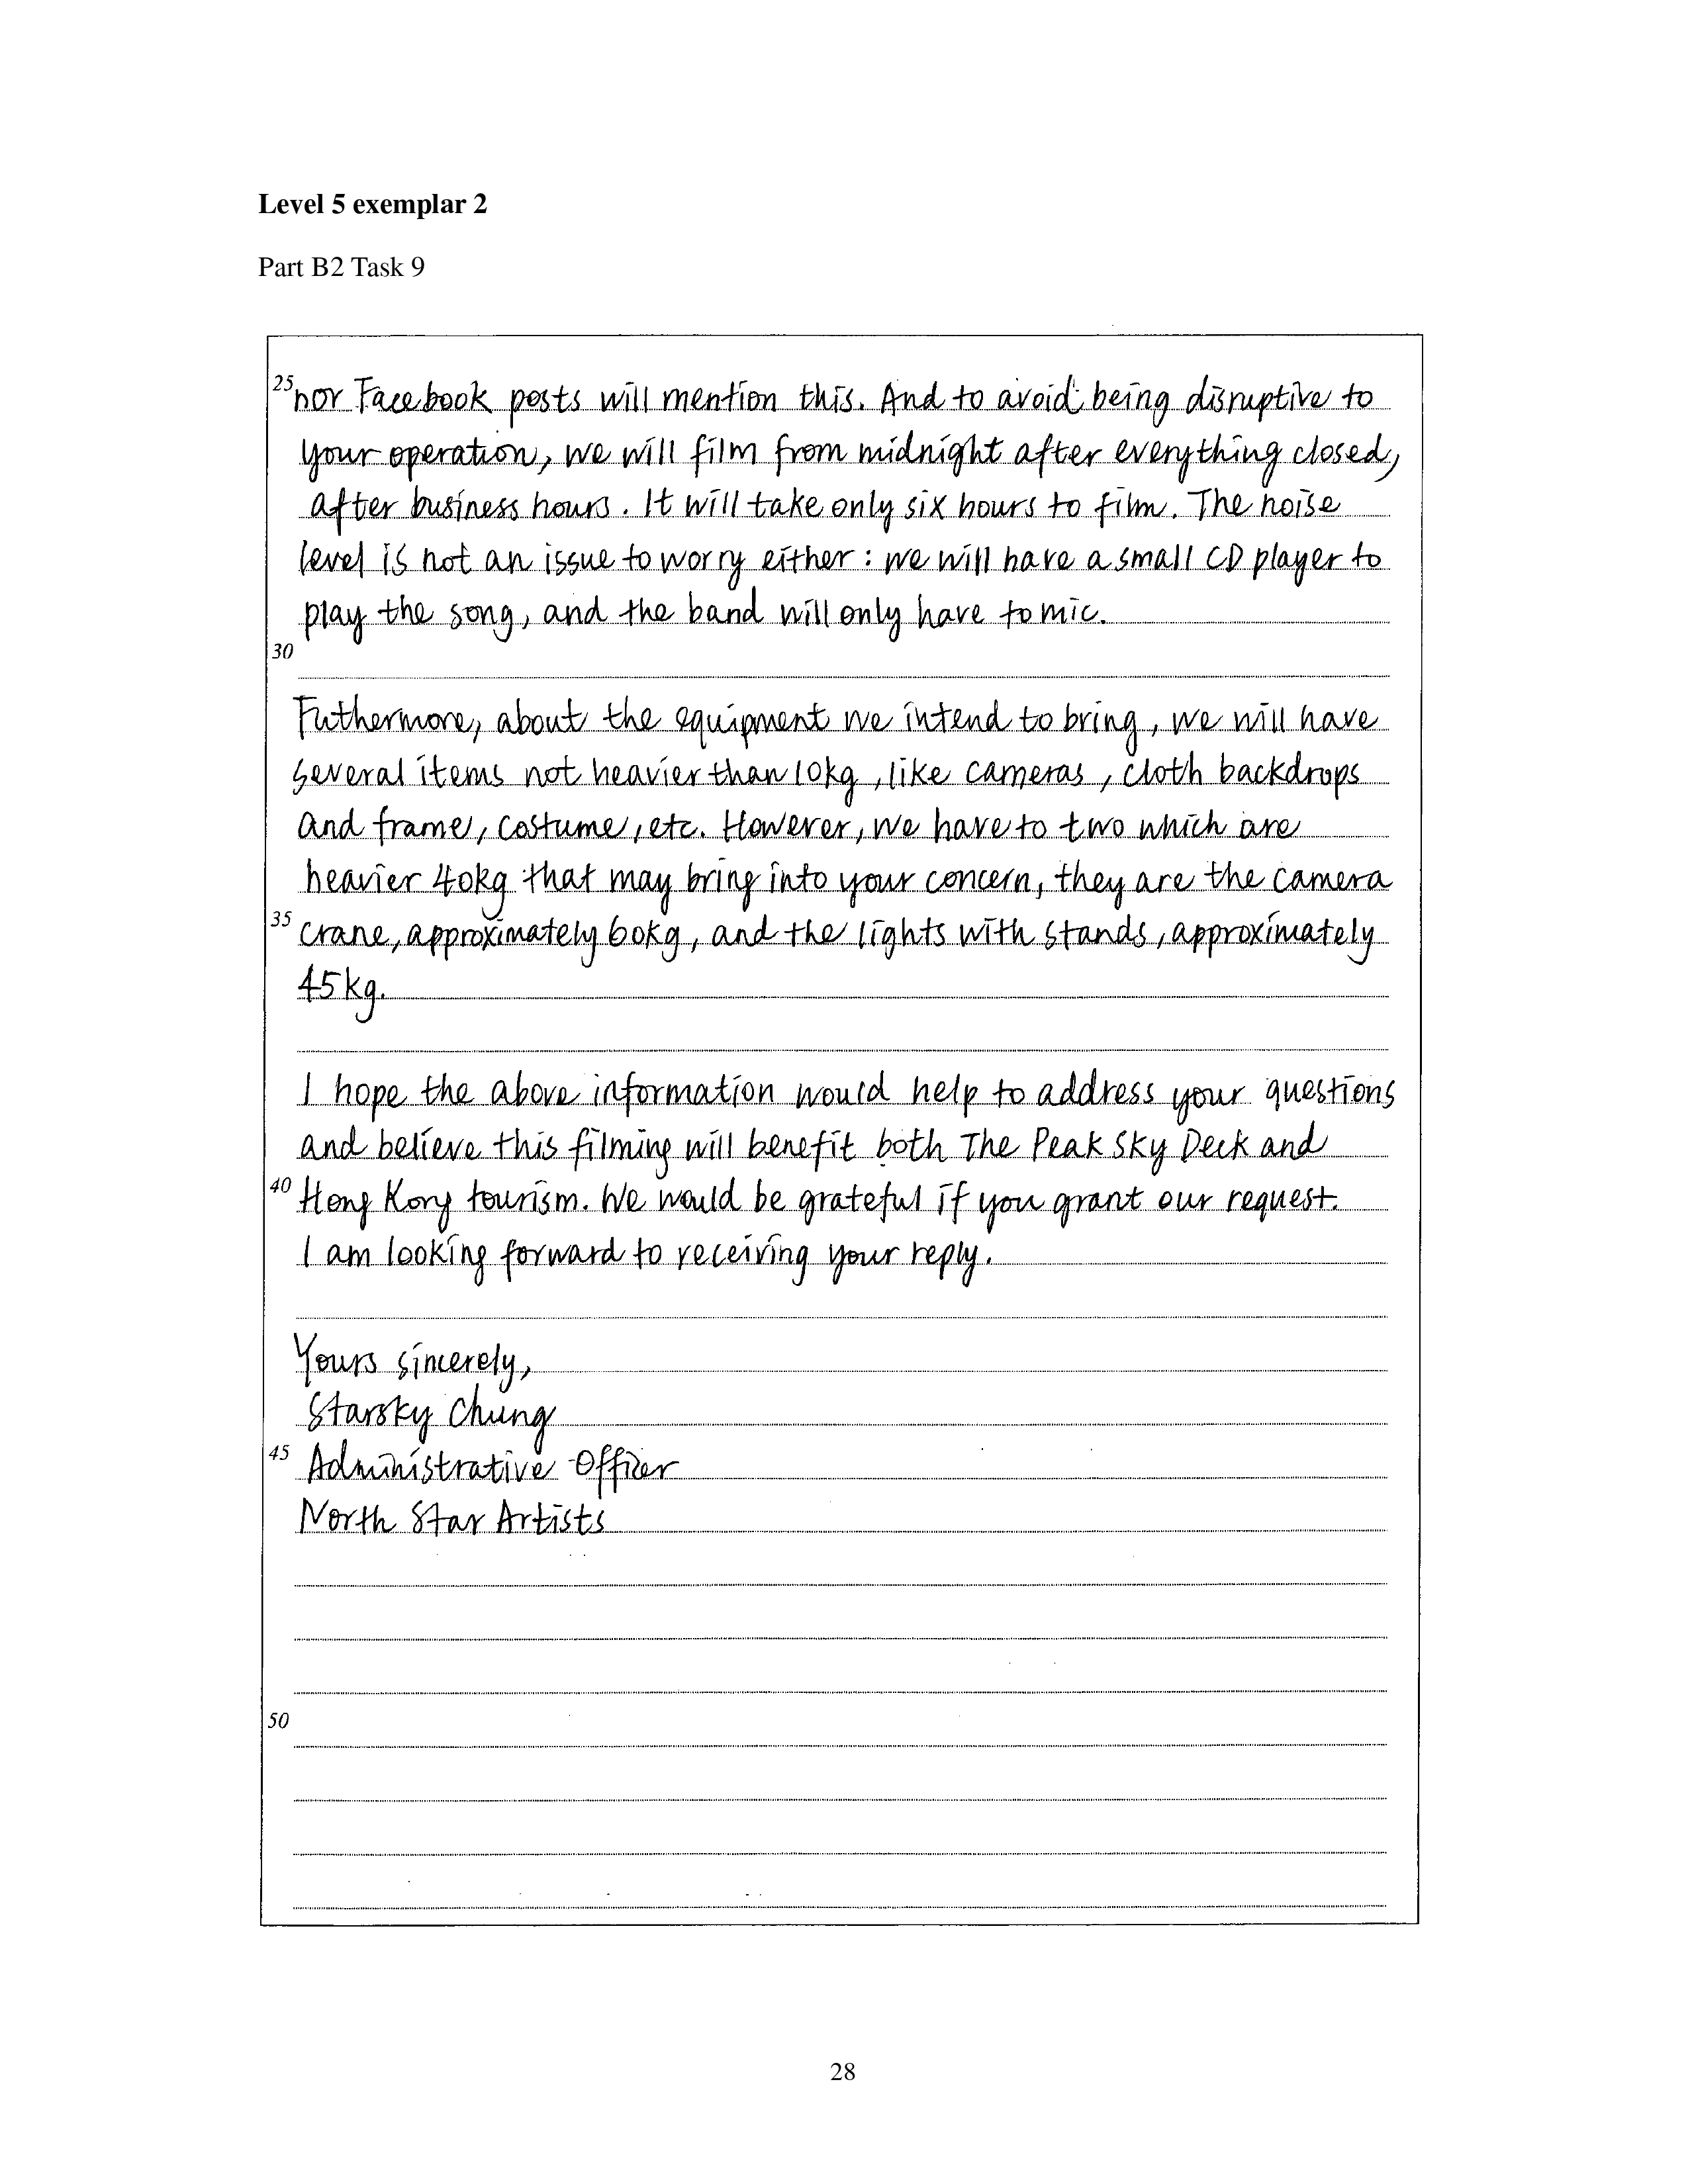 Level 5 exemplar 2
Part B2 Task 9
25 nor Facebook posts will mention this. And to avoid being disruptive to
your operation, we will film from midnight after everything closed,
after business hours. It will take only six hours to film. The noise
level is not an issue to worry either: we will have a small CD player to
play the song, and the band will only have to mic.
30
Futhermore, about the equipment we intend to bring, we will have
several items not heavier than 10kg, like cameras, cloth backdrops
and frame, costume, etc. However, we have to two which are
heavier 40kg that may bring into your concern, they are the camera
35 crane, approximately 60kg, and the lights with stands, approximately
45kg.
I hope the above information would help to address your questions
and believe this filming will benefit both The Peak Sky Deck and
40 Hong Kong tourism. We would be grateful if you grant our request.
I am looking forward to receiving your reply.
Yours sincerely,
Starsky Chung
45 Administrative Officer
North Star Artists
50
28